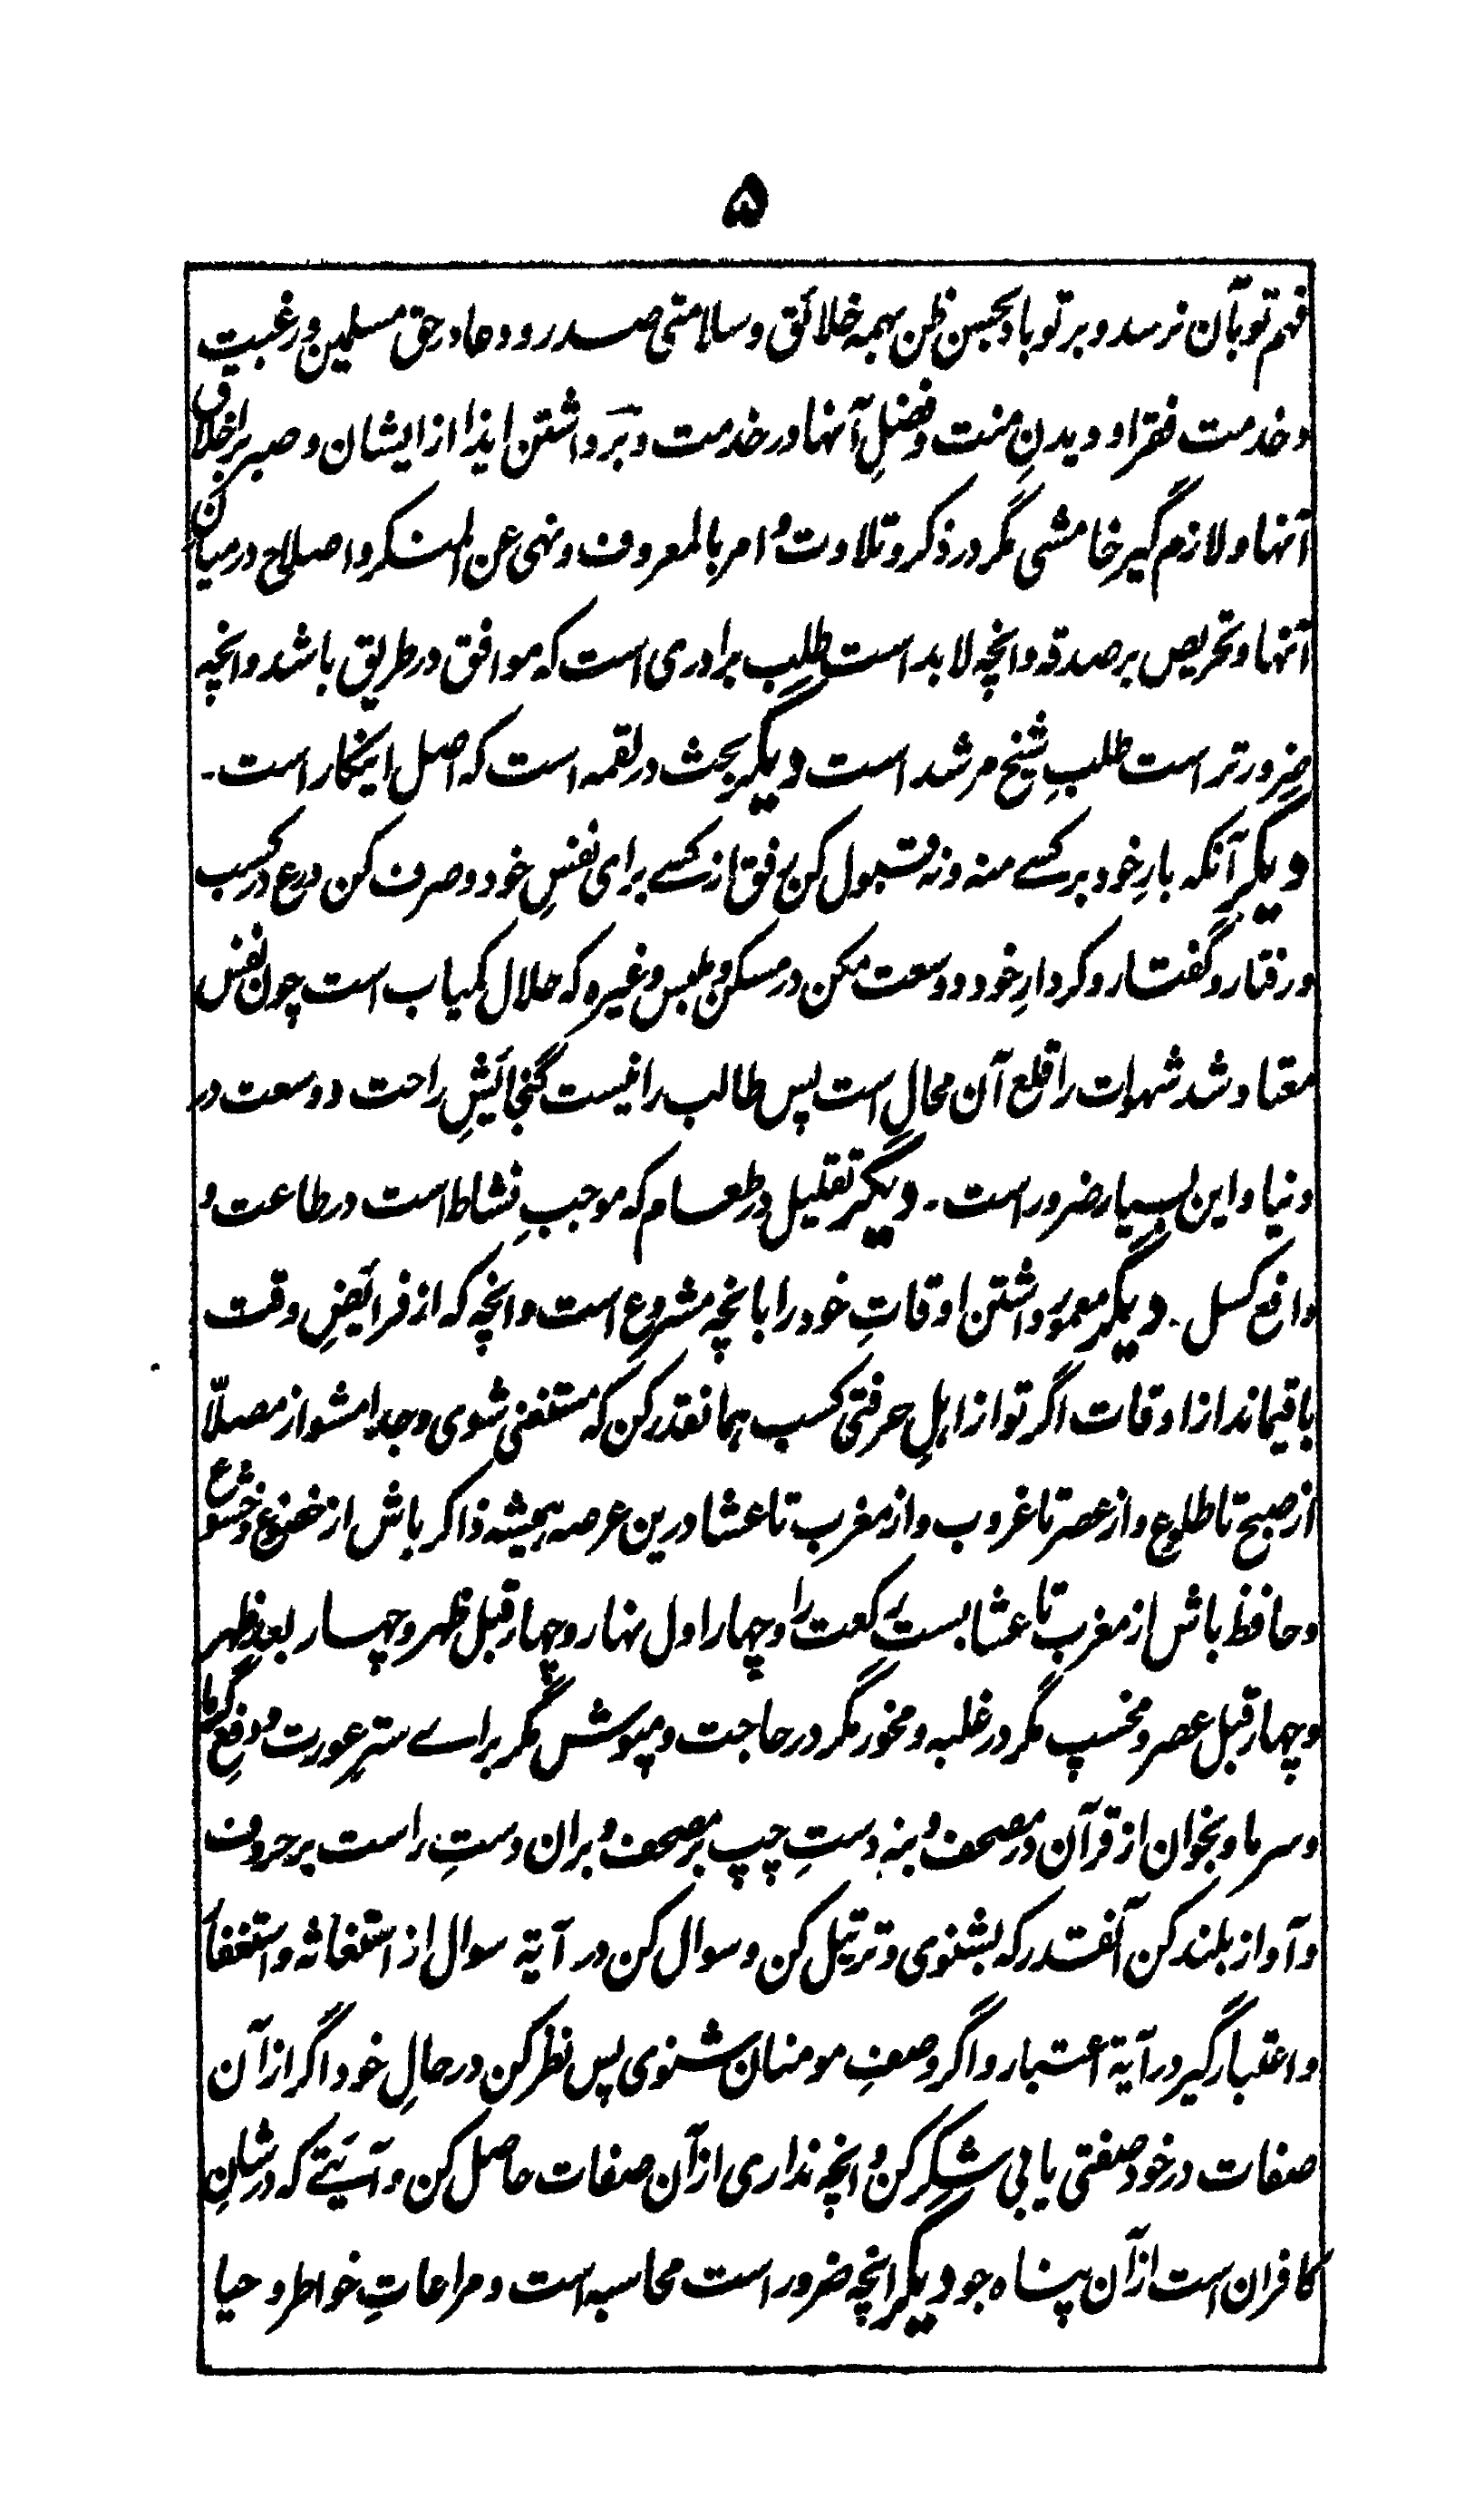 ۵
فہم تو بآن نرسد و بر تو باد بحسن ظن بہمہ خلائق و سلامتی صدر و دعا در حق مسلمین و رغبت
و خدمت فقرا و دیدنِ منت و فضلِ آنہا در خدمت و برداشتن ایذا از ایشان و صبر بر اخلاق
آنہا و لازم گیر خامشی مگر در ذکر و تلاوت و امر بالمعروف و نہی عن المنکر و اصلاح در میان
آنہا و تحریص بر صدقہ و انچہ لا بد است طلب برادری است کہ موافق در طریق باشد و انچہ
ضرور تر است طلبِ شیخ مرشد است دیگر بحث در لقمہ است کہ اصل اینکار است ۔
دیگر آنکہ بارِ خود بر کسے منہ و نہ قبول کن رفق از کسے برای نفسِ خود و صرف کن ورع در کسب
و رفتار و گفتار و کردارِ خود و وسعت مکن در مسکن و ملبس و غیرہ کہ حلال کمیاب است چون نفس
معتاد شد شہوات را قلع آن محال است پس طالب را نیست گنجائشِ راحت و وسعت در
دنیا و این بسیار ضرور است ۔ دیگر تقلیل در طعام کہ موجبِ نشاط است در طاعت و
دافع کسل ۔ دیگر معمور داشتن اوقاتِ خود را بانچہ مشروع است و انچہ کہ از فرائضِ وقت
باقیماند از اوقات اگر تو از اہلِ حرفتی کسب ہمانقدر کن کہ مستغنی شوی و جدا مشو از مصلّا
از صبح تا طلوع و از عصر تا غروب و از مغرب تا عشا درین عرصہ ہمیشہ ذاکر باش از خضوع و خشوع
و حافظ باش از مغرب تا عشا بست رکعت را و چہار اول نہار و چہار قبل ظہر و چہار بعد ظہر
و چہار قبل عصر و مخسپ مگر در غلبہ و مخور مگر در حاجت و مپوش مگر براے سترِ عورت و دفعِ گرما
و سرما و بخوان از قرآن در مصحف و بنہ دستِ چپ بر مصحف و بران دستِ راست بر حروف
و آواز بلند کن آنقدر کہ بشنوی و ترتیل کن و سوال کن در آیۃ سوال از استغاثہ و استغفار
و اعتبار گیر در آیۃ اعتبار و اگر وصفِ مومنان شنوی پس نظر کن در حالِ خود اگر از آن
صفات در خود صفتی یابی شکر کن و انچہ نداری از آن صفات حاصل کن و آیتے کہ در شانِ
کافران است از آن پناہ جو دیگر انچہ ضرور است محاسبہ است و مراعاتِ خواطر و حیا